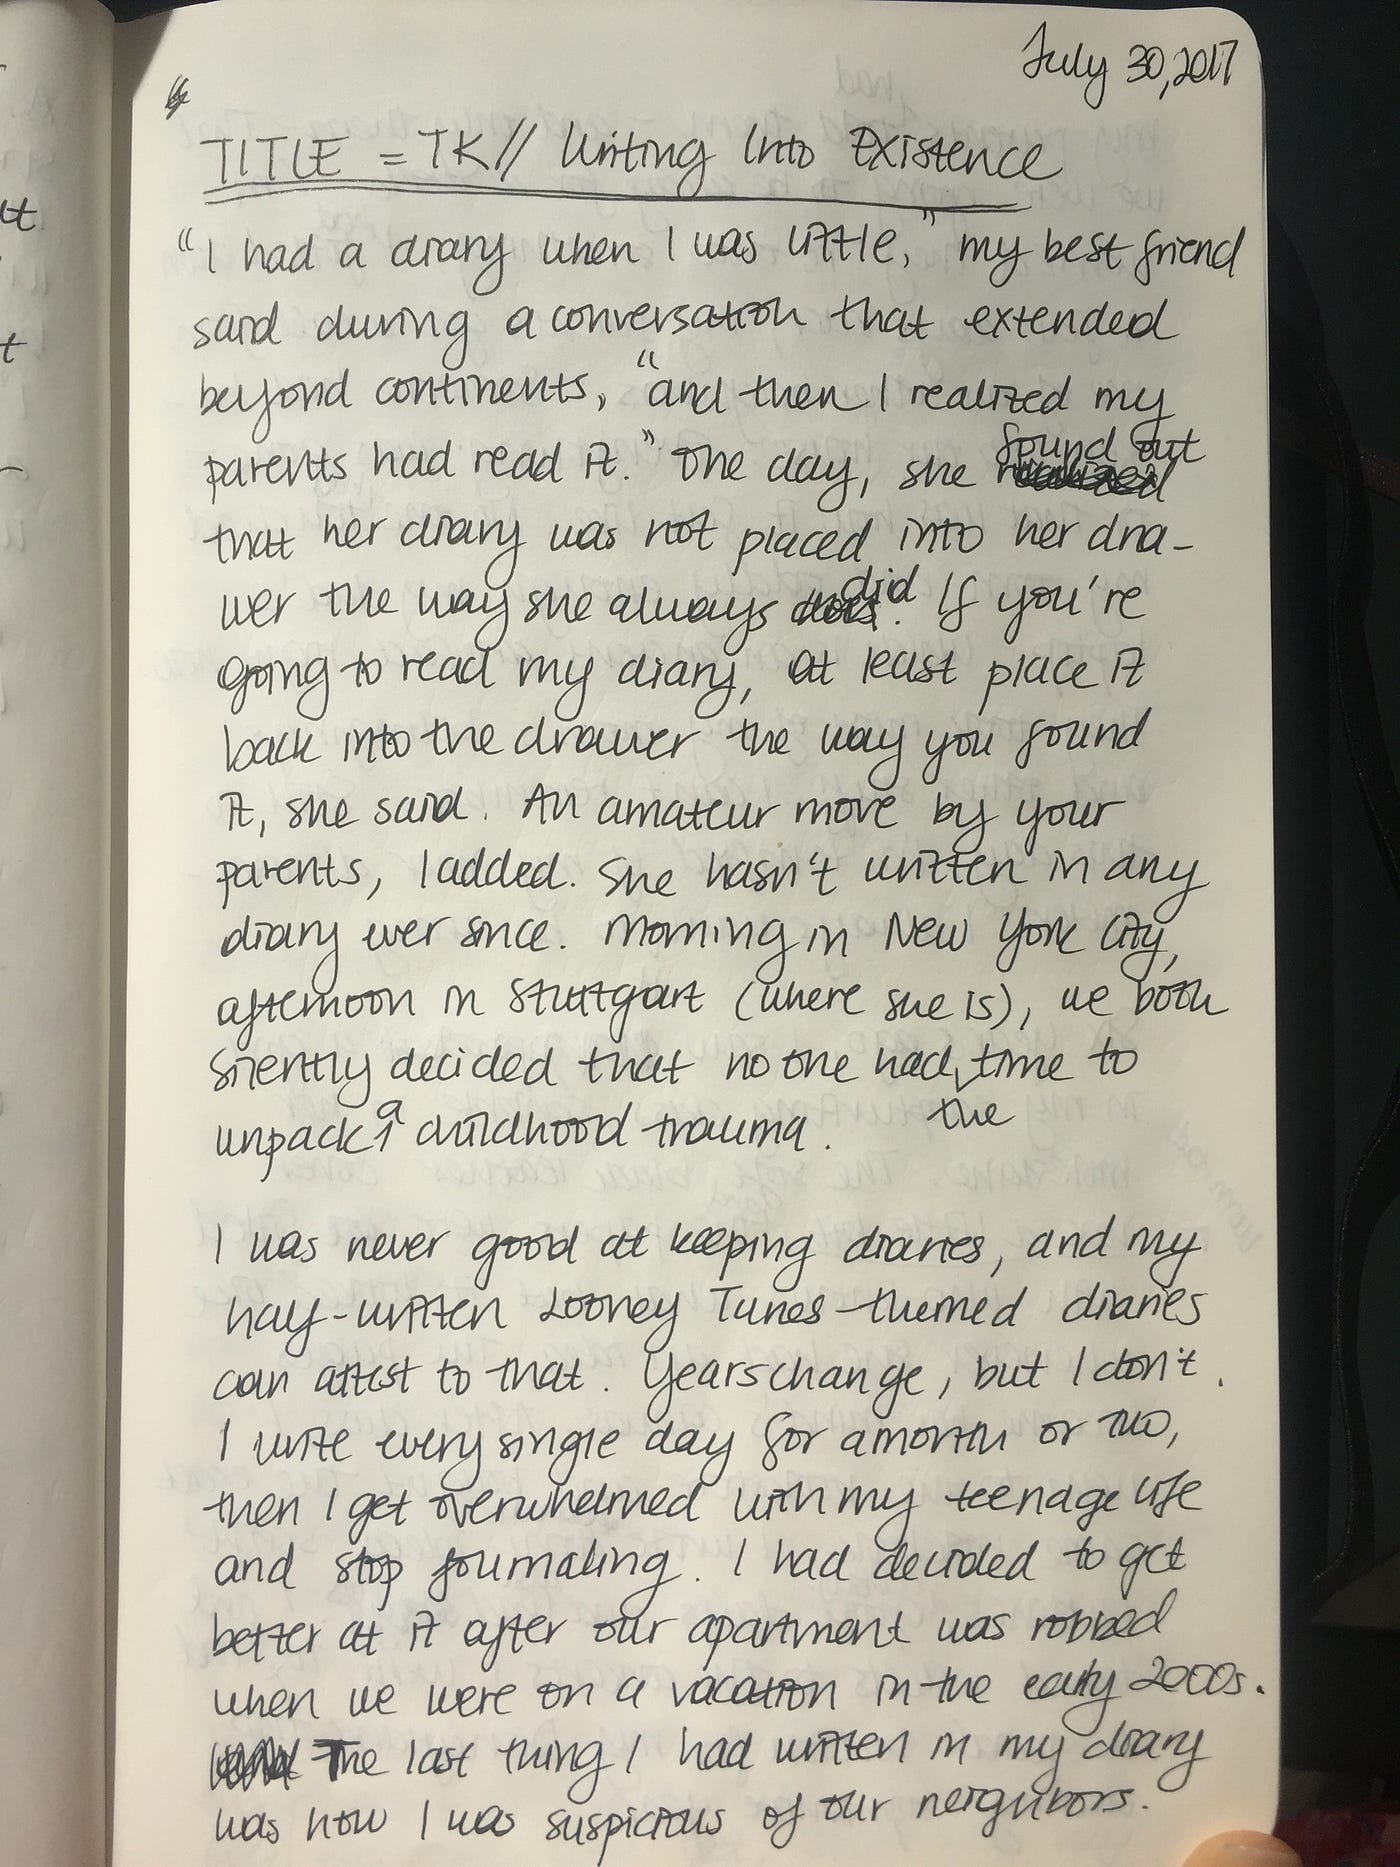 July 30, 2017
TITLE = TK // Writing Into Existence
"I had a diary when I was little," my best friend
said during a conversation that extended
beyond continents, "and then I realized my
parents had read it." One day, she found out
that her diary was not placed into her dra-
wer the way she always did. If you're
going to read my diary, at least place it
back into the drawer the way you found
it, she said. An amateur move by your
parents, I added. She hasn't written in any
diary ever since. Morning in New York City,
afternoon in Stuttgart (where she is), we both
silently decided that no one had the time to
unpack a childhood trauma.
I was never good at keeping diaries, and my
half-written Looney Tunes-themed diaries
can attest to that. Years change, but I don't.
I write every single day for a month or two,
then I get overwhelmed with my teenage life
and stop journaling. I had decided to get
better at it after our apartment was robbed
when we were on a vacation in the early 2000s.
The last thing I had written in my diary
was how I was suspicious of our neighbors.